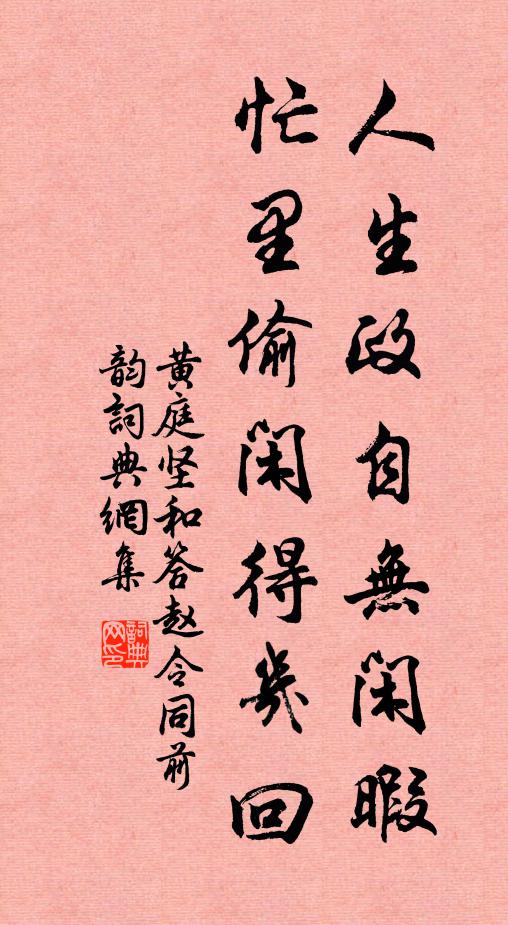 人生政自無閑暇
忙里偷閑得幾回
黄庭坚和答赵令同前
韵詞典網集
詞典
网印